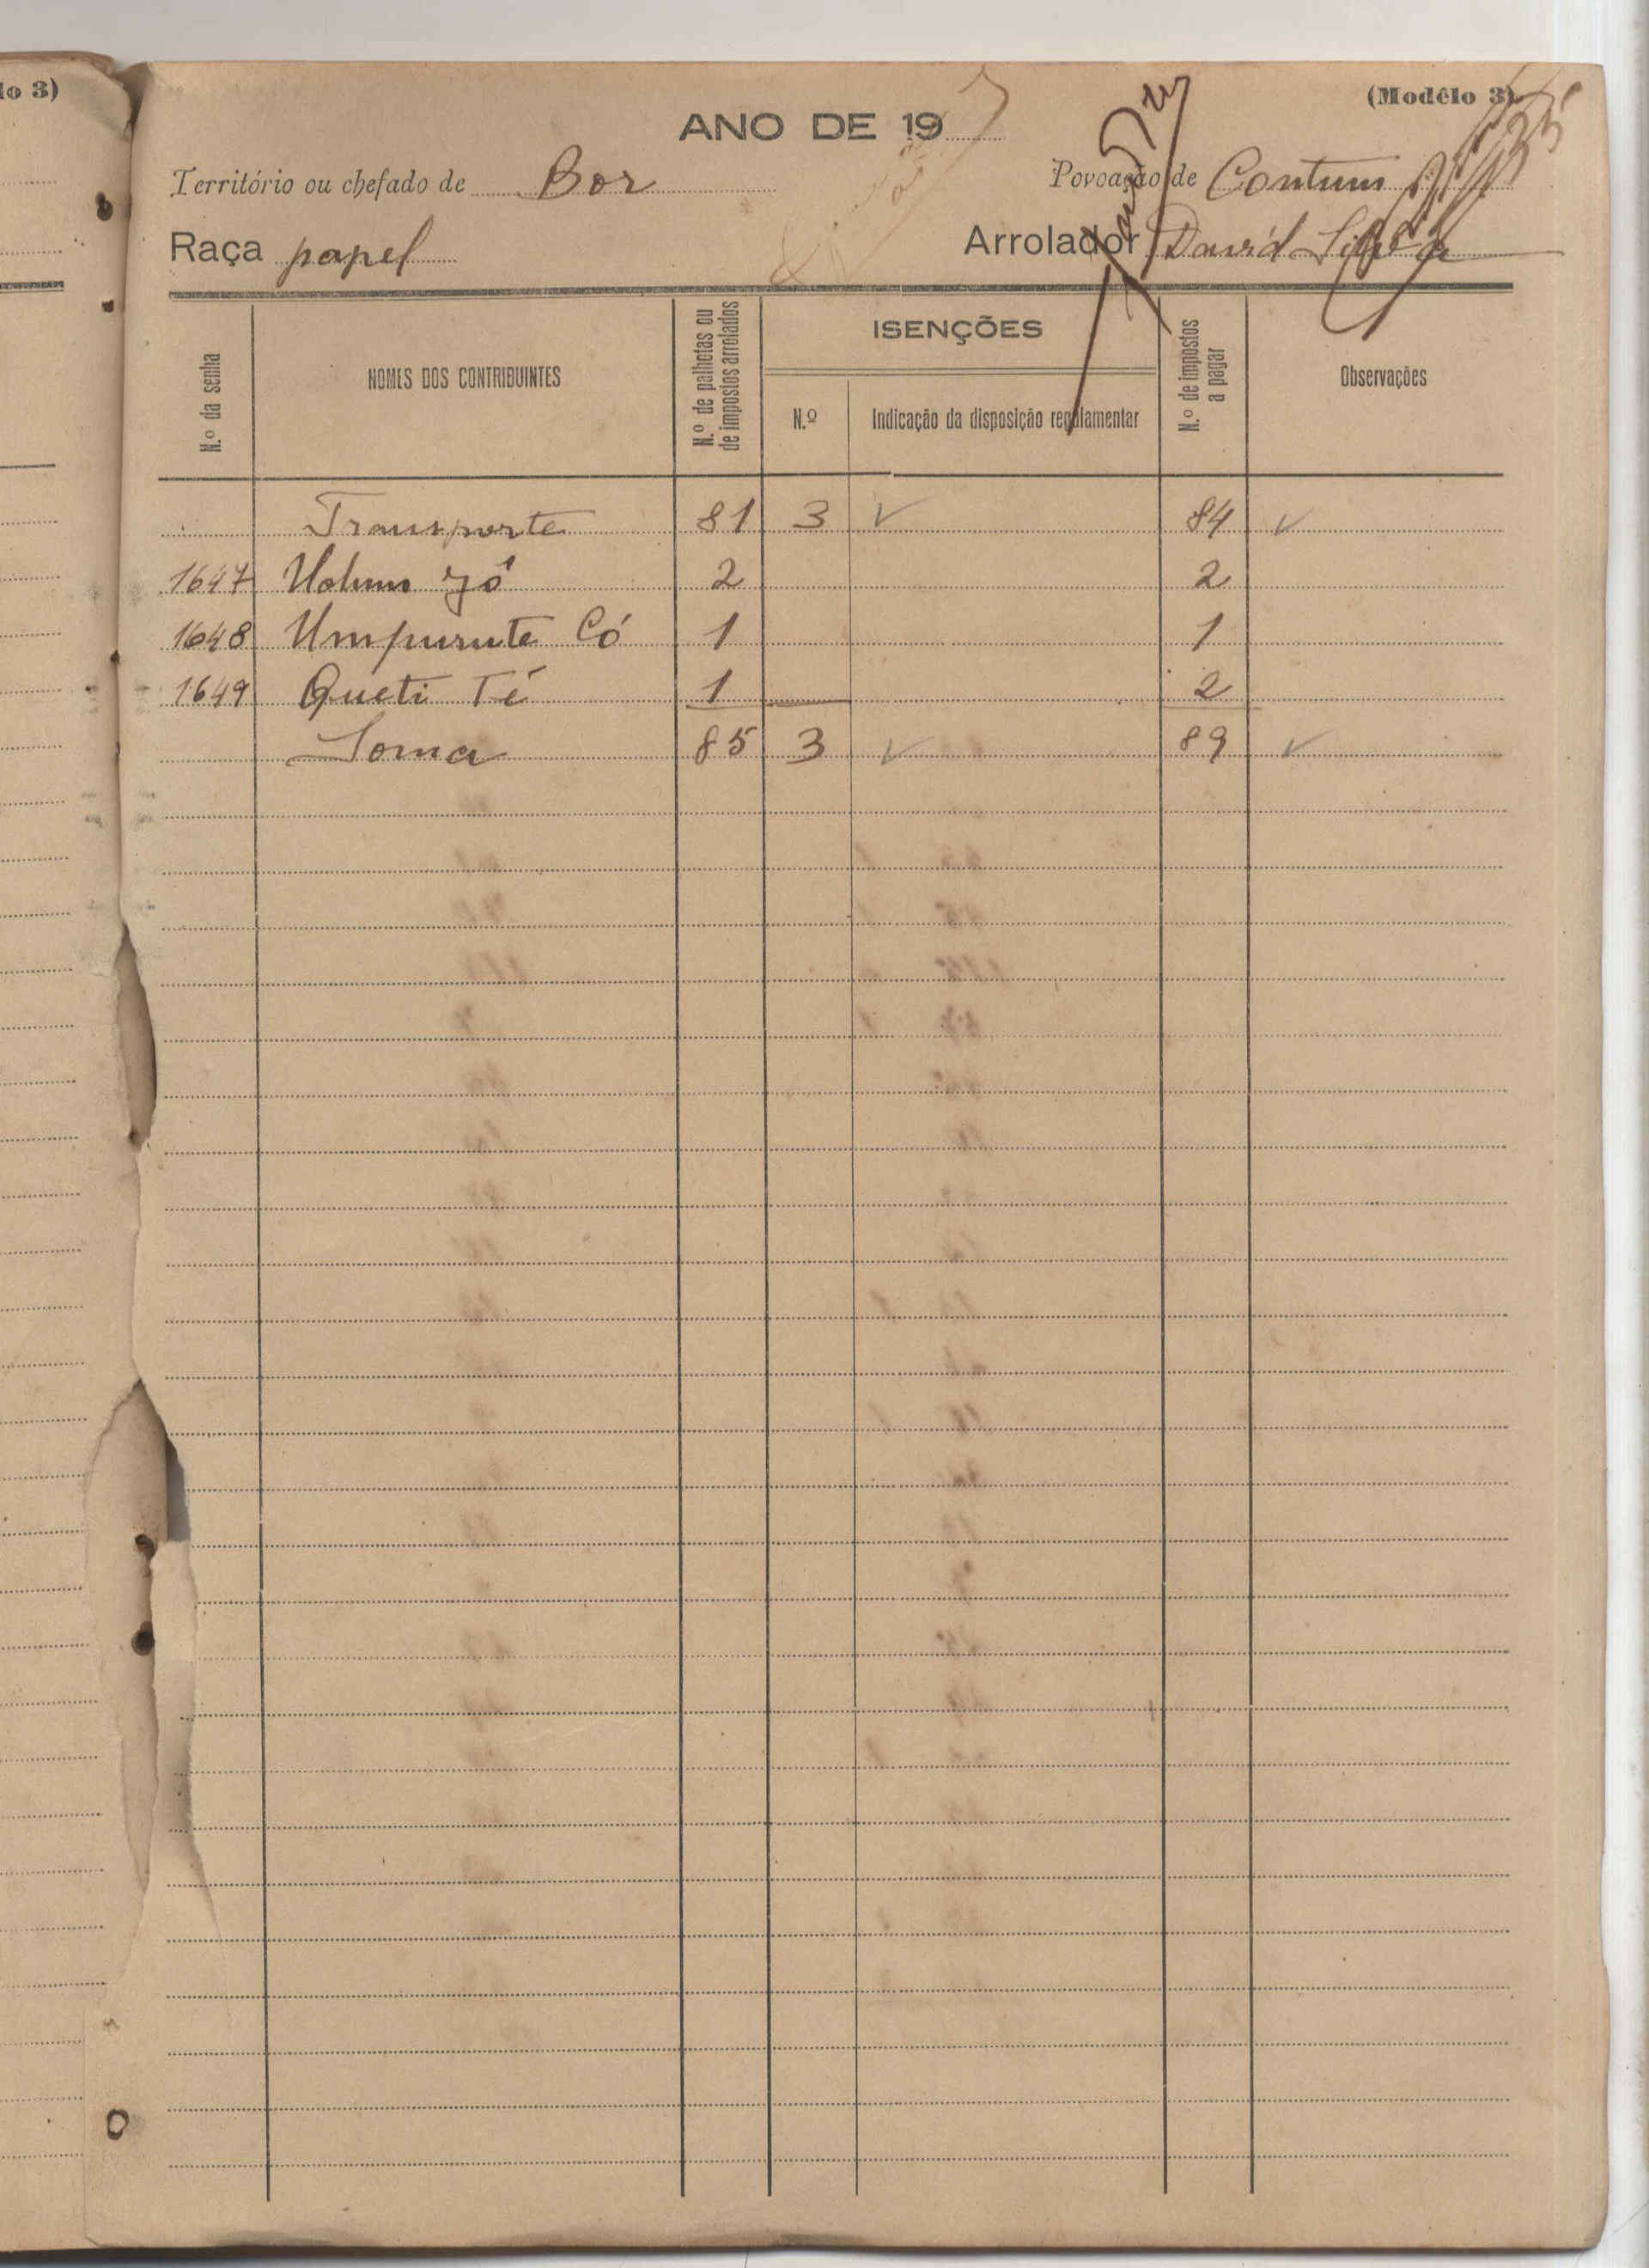 lo 3)
(Modêlo 3)
ANO DE 19
Território ou chefado de Bor
Povoação de Contum
Raça papel
Arrolador David Silva
N.º da senha
NOMES DOS CONTRIBUINTES
N.º de palhotas ou de impostos arrolados
ISENÇÕES
N.º
Indicação da disposição regulamentar
N.º de impostos a pagar
Observações
Transporte 81 3 84
1647 2 2
1648 Có 1 1
1649 Queti Té 1 2
Soma 85 3 89